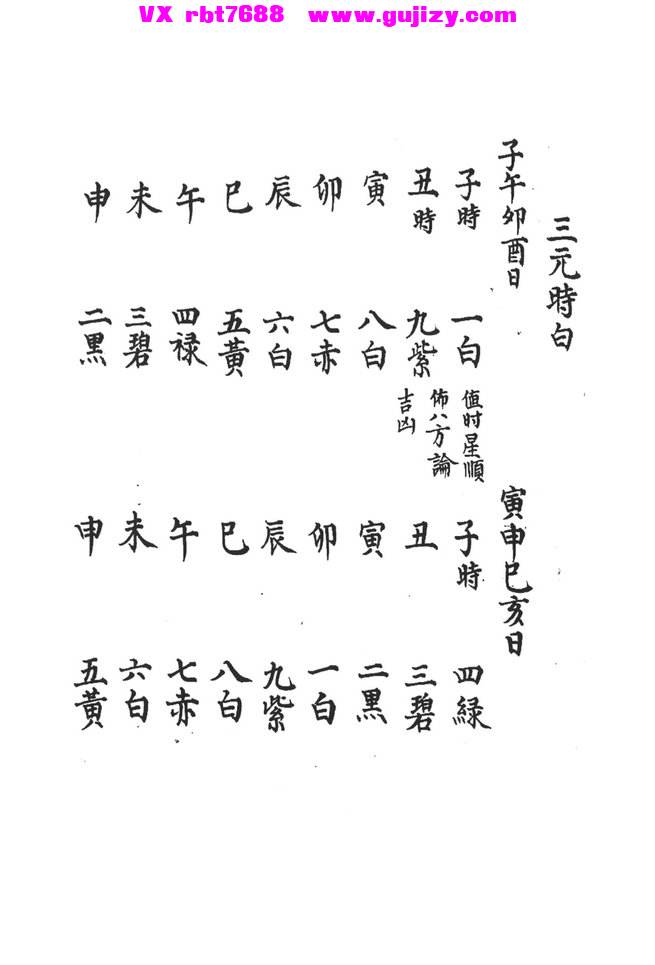 VX rbt7688 www.gujizy.com
三元時白
子午卯酉日
子時 一白
值时星順
佈八方論
吉凶
丑時 九紫
寅 八白
卯 七赤
辰 六白
巳 五黃
午 四禄
未 三碧
申 二黑
寅申巳亥日
子時 四緑
丑 三碧
寅 二黑
卯 一白
辰 九紫
巳 八白
午 七赤
未 六白
申 五黃